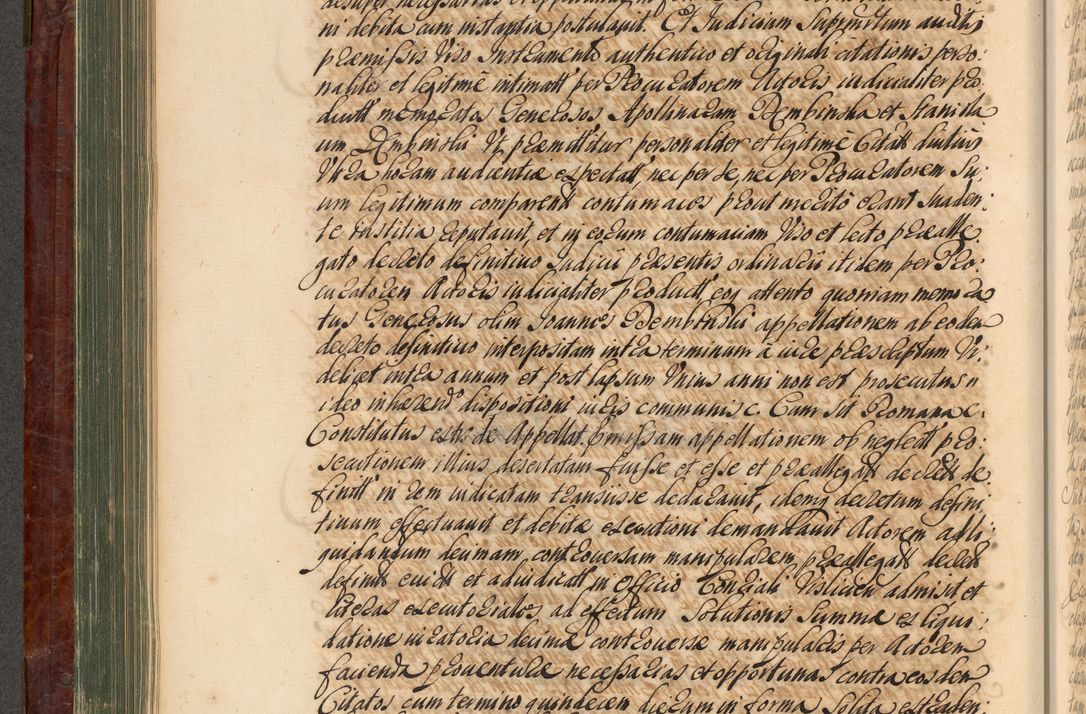 desuper necessarias et opportunas
ni debita cum instantia postulavit. Et Iudicium Supradictum auditis
præmissis Viso Instrumento authentico et originali citationis perso:
naliter et legitimè intimatt per Procuratorem Actoris iudicialiter pro
ductt memoratos Generosos Apollinarum Dembinska et Stanisla
um Dembinski Vt præmittitur personaliter et legitimè Citatt diutius
Vltra horam audientiæ expectatt, nec per se, nec per Procuratorem Su,
um legitimum comparent contumaces prout meritò erant Svaden:
te Iustitia reputavit, et in eorum contumaciam Viso et lecto præalle
gato decreto definitivo Iudicii præsentis ordinarii itidem per Pro:
curatorem Actoris iudicialiter productt, eoq attento quoniam memora
tus Generosus olim Joannes Dembinski appellationem ab eodem
decreto definitivo interpositam intra terminum à iure præscriptum Vi,
delicet intra annum et post lapsum Vnius anni non est prosecutus
ideo inhærend° dispositioni iuris communis c. Cum sit Romana c.
Constitutus extr. de Appellat. Emissam appellationem ob neglect pro:
secutionem illius desertatam fuisse et esse et præallegatt decrett de
finitt in rem iudicatam transiisse declaravit, idemq decretum defini
tivum effectuavit et debitæ executioni demandavit Actorem ad li:
quidandum decimam controversam manipularem, præallegatt decrett
definitt evictt et adiudicatt in Officio Consciali Visliciens admisit et
literas executoriales ad effectum Solutionis Summæ ex liqui:
datione iuratoria decimæ controversæ manipularis per Actorem
facienda proventuræ necessarias et opportunas contra eosdem
Citatos cum termino quindecem dierum in forma Solita extraden: